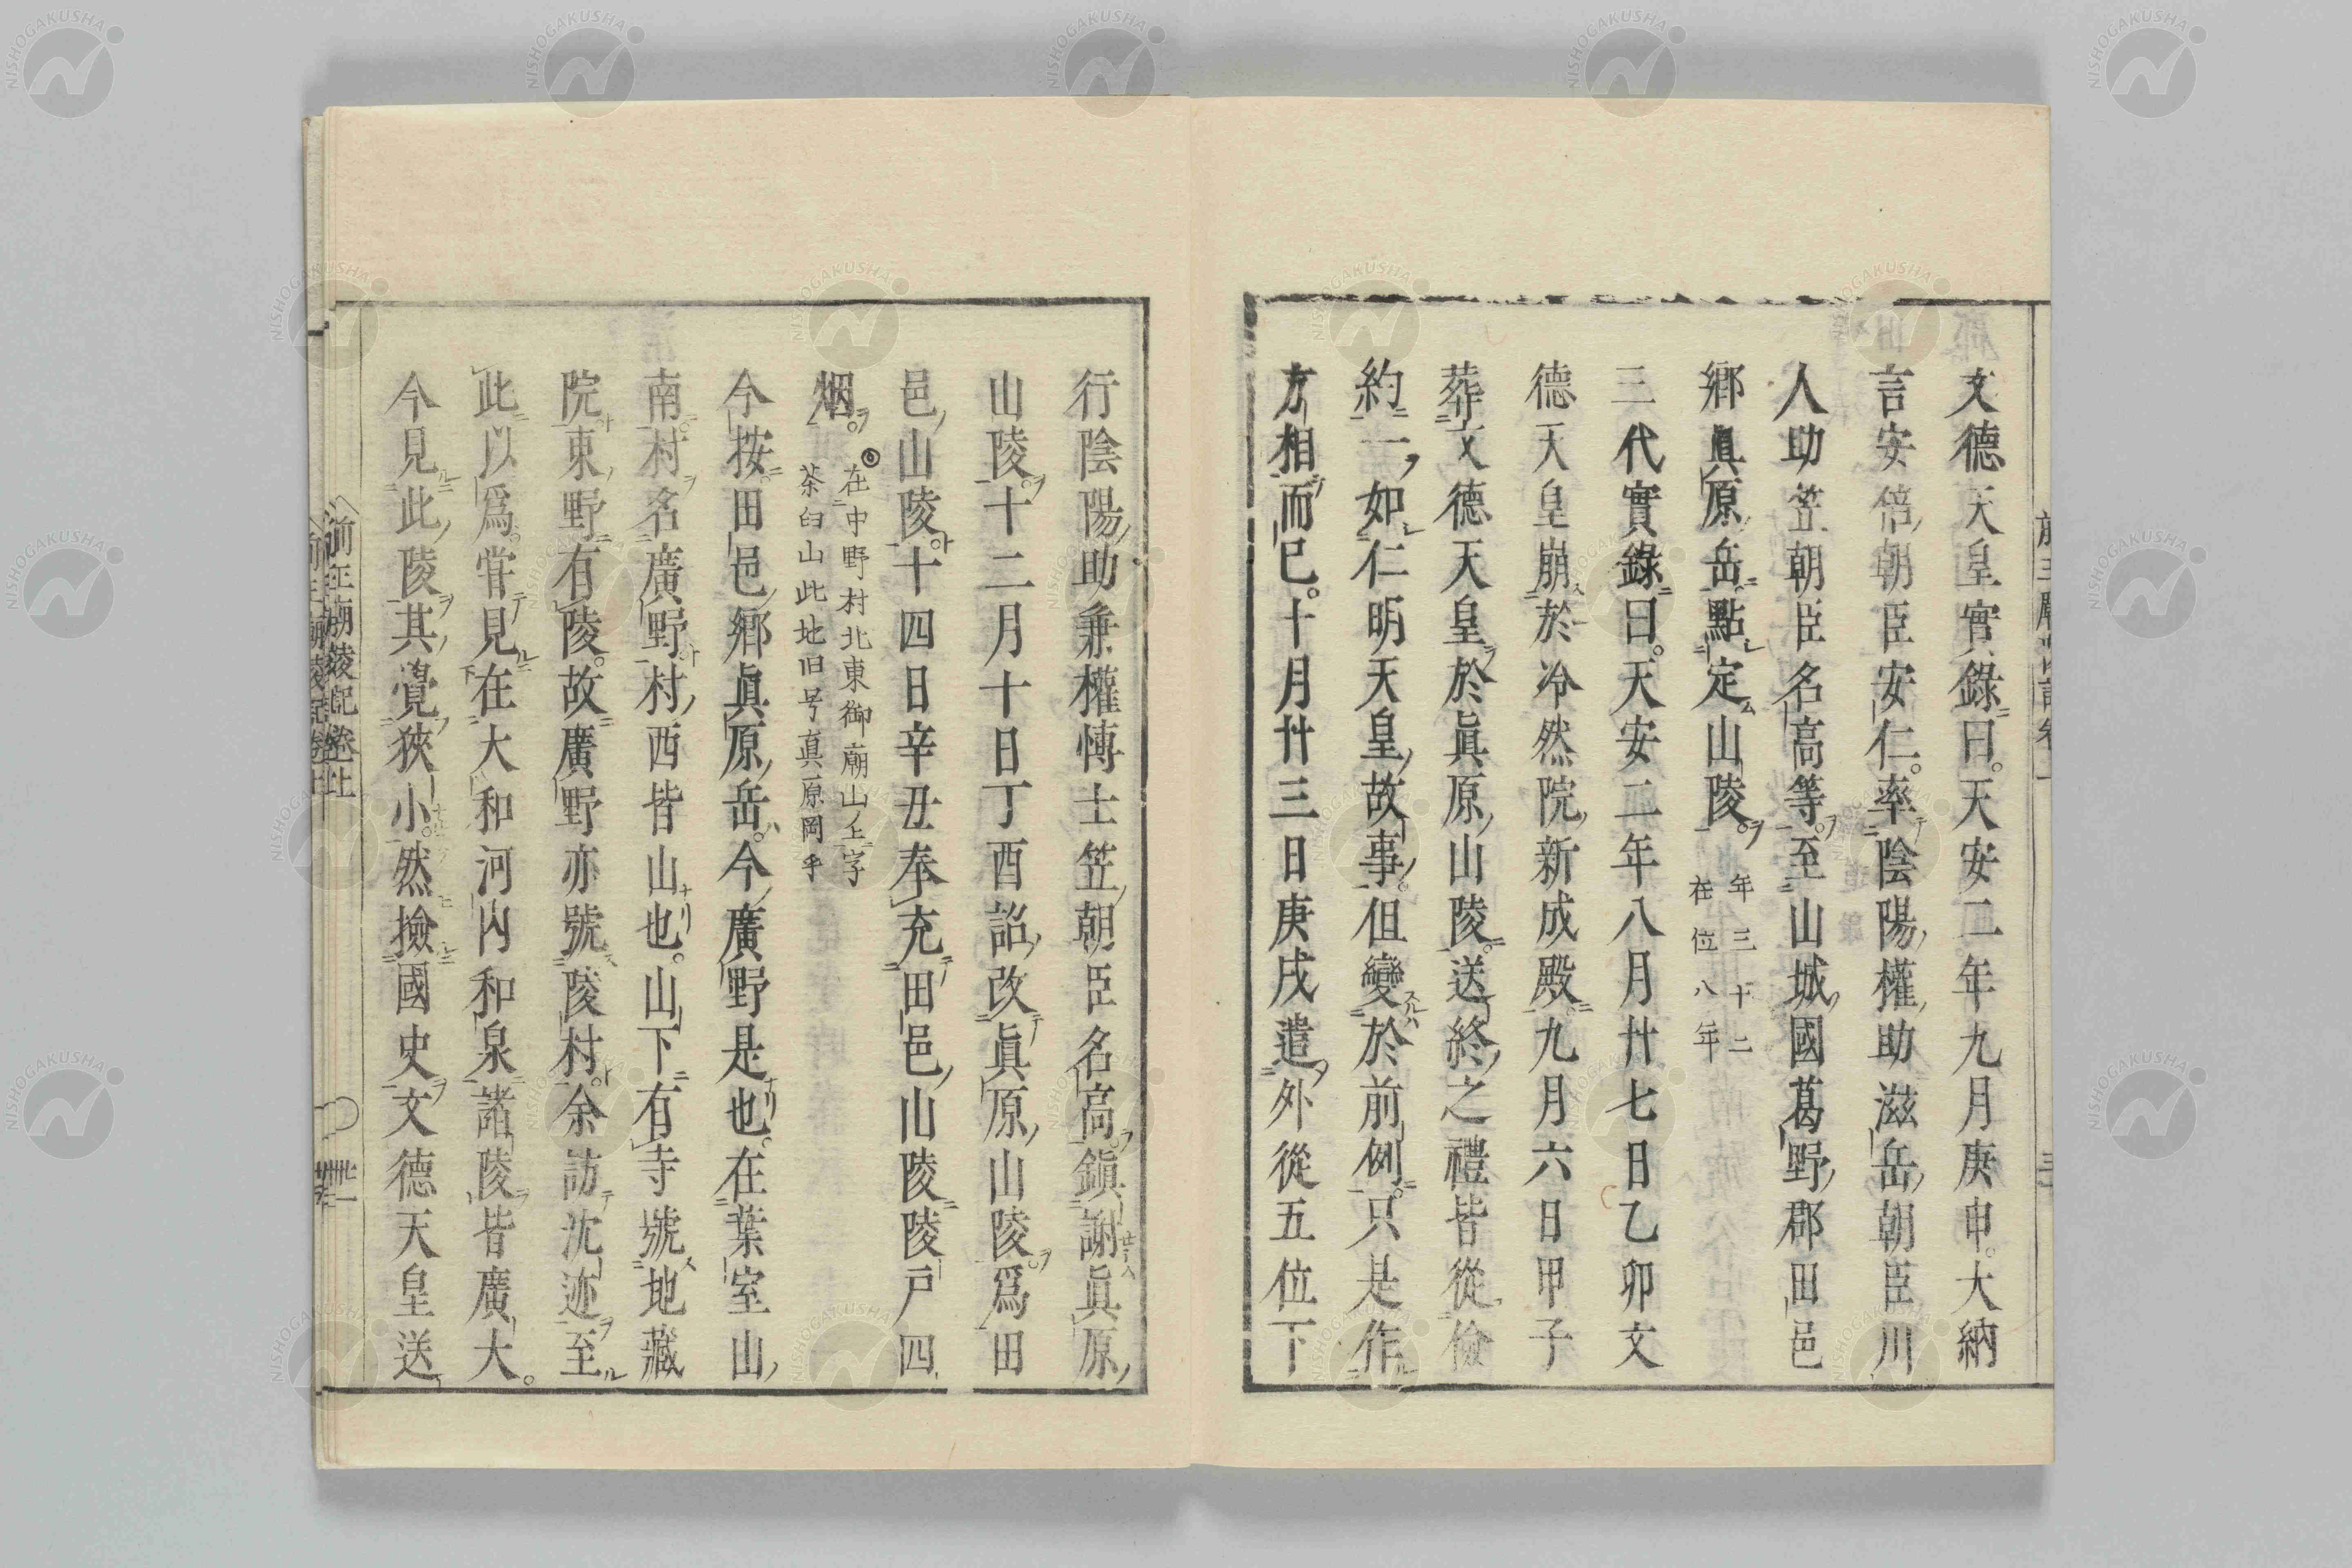 文德天皇實錄曰。天安二年九月庚申。大納
言安倍朝臣安仁。率陰陽權助滋岳朝臣川
人助笠朝臣名高等。至山城國葛野郡田邑
鄉眞原岳。點定山陵。
年三十二
在位八年
三代實錄曰。天安二年八月廿七日乙卯文
德天皇崩於冷然院新成殿九月六日甲子
葬文德天皇於眞原山陵。送終之禮皆從儉
約一如仁明天皇故事。但變於前例。只是作
方相而已。十月廿三日庚戌遣外從五位下
行陰陽助兼權博士笠朝臣名高鎭謝眞原
山陵。十二月十日丁酉詔改眞原山陵爲田
邑山陵。十四日辛丑奉充田邑山陵陵戸四
烟。
在中野村北東御廟山ノ上ニ字
茶臼山此地旧号真原岡乎
今按田邑鄉眞原岳。今廣野是也。在葉室山
南村名廣野村西皆山也。山下有寺號地藏
院東野有陵。故廣野亦號陵村。余訪沈迹至
此以爲。嘗見在大和河內和泉諸陵皆廣大。
今見此陵其覺狹小。然撿國史文德天皇送
前王廟陵記卷上
卅一
NISHOGAKUSHA